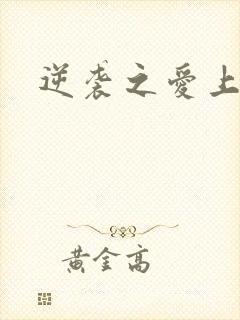 逆袭之愛上
黄金高